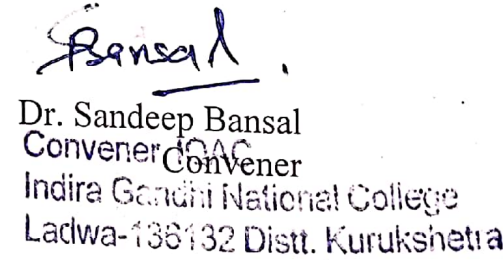 Bansal
Dr. Sandeep Bansal
Convener IQAC
Convener
Indira Gandhi National College
Ladwa-136132 Distt. Kurukshetra